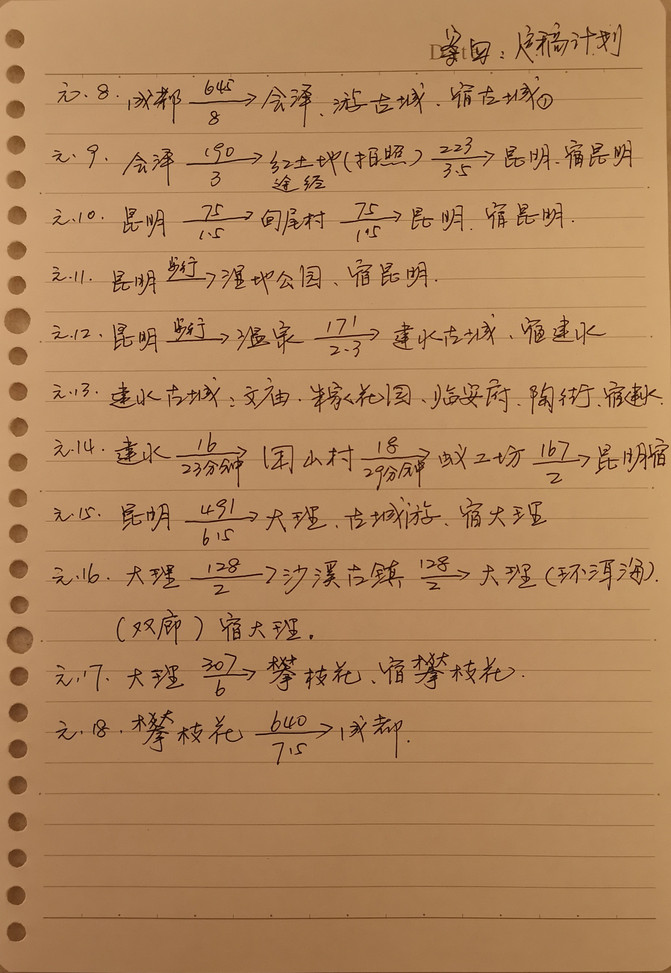 定稿计划
元.8. 成都 645/8 → 会泽、游古城、宿古城①
元.9. 会泽 190/3 → 红土地(拍照) 途经 223/3.5 → 昆明、宿昆明
元.10. 昆明 75/1.5 → 甸尾村 75/1.5 → 昆明. 宿昆明.
元.11. 昆明 步行 → 湿地公园、宿昆明.
元.12. 昆明 步行 → 温泉 171/2.3 → 建水古城、宿建水
元.13. 建水古城: 文庙、朱家花园、临安府、陶街、宿建水.
元.14. 建水 16/23分钟 → 团山村 18/29分钟 → 蚁工坊 167/2 → 昆明宿
元.15. 昆明 491/6.5 → 大理、古城游、宿大理
元.16. 大理 128/2 → 沙溪古镇 128/2 → 大理(环洱海).
(双廊) 宿大理.
元.17. 大理 307/6 → 攀枝花、宿攀枝花.
元.18. 攀枝花 640/7.5 → 成都.